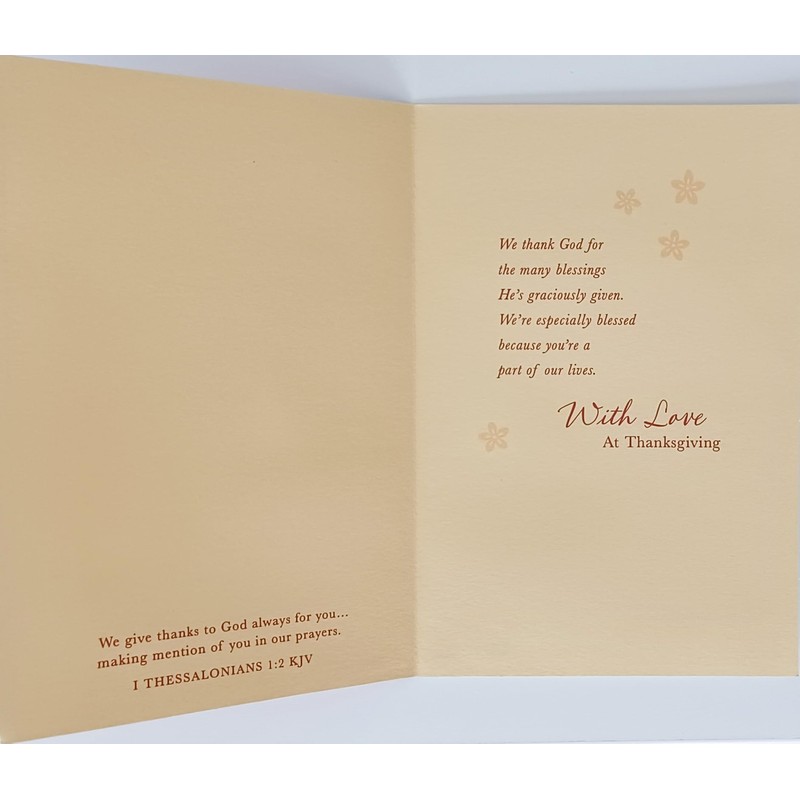 We give thanks to God always for you...
making mention of you in our prayers.
I THESSALONIANS 1:2 KJV
We thank God for
the many blessings
He's graciously given.
We're especially blessed
because you're a
part of our lives.
With Love
At Thanksgiving